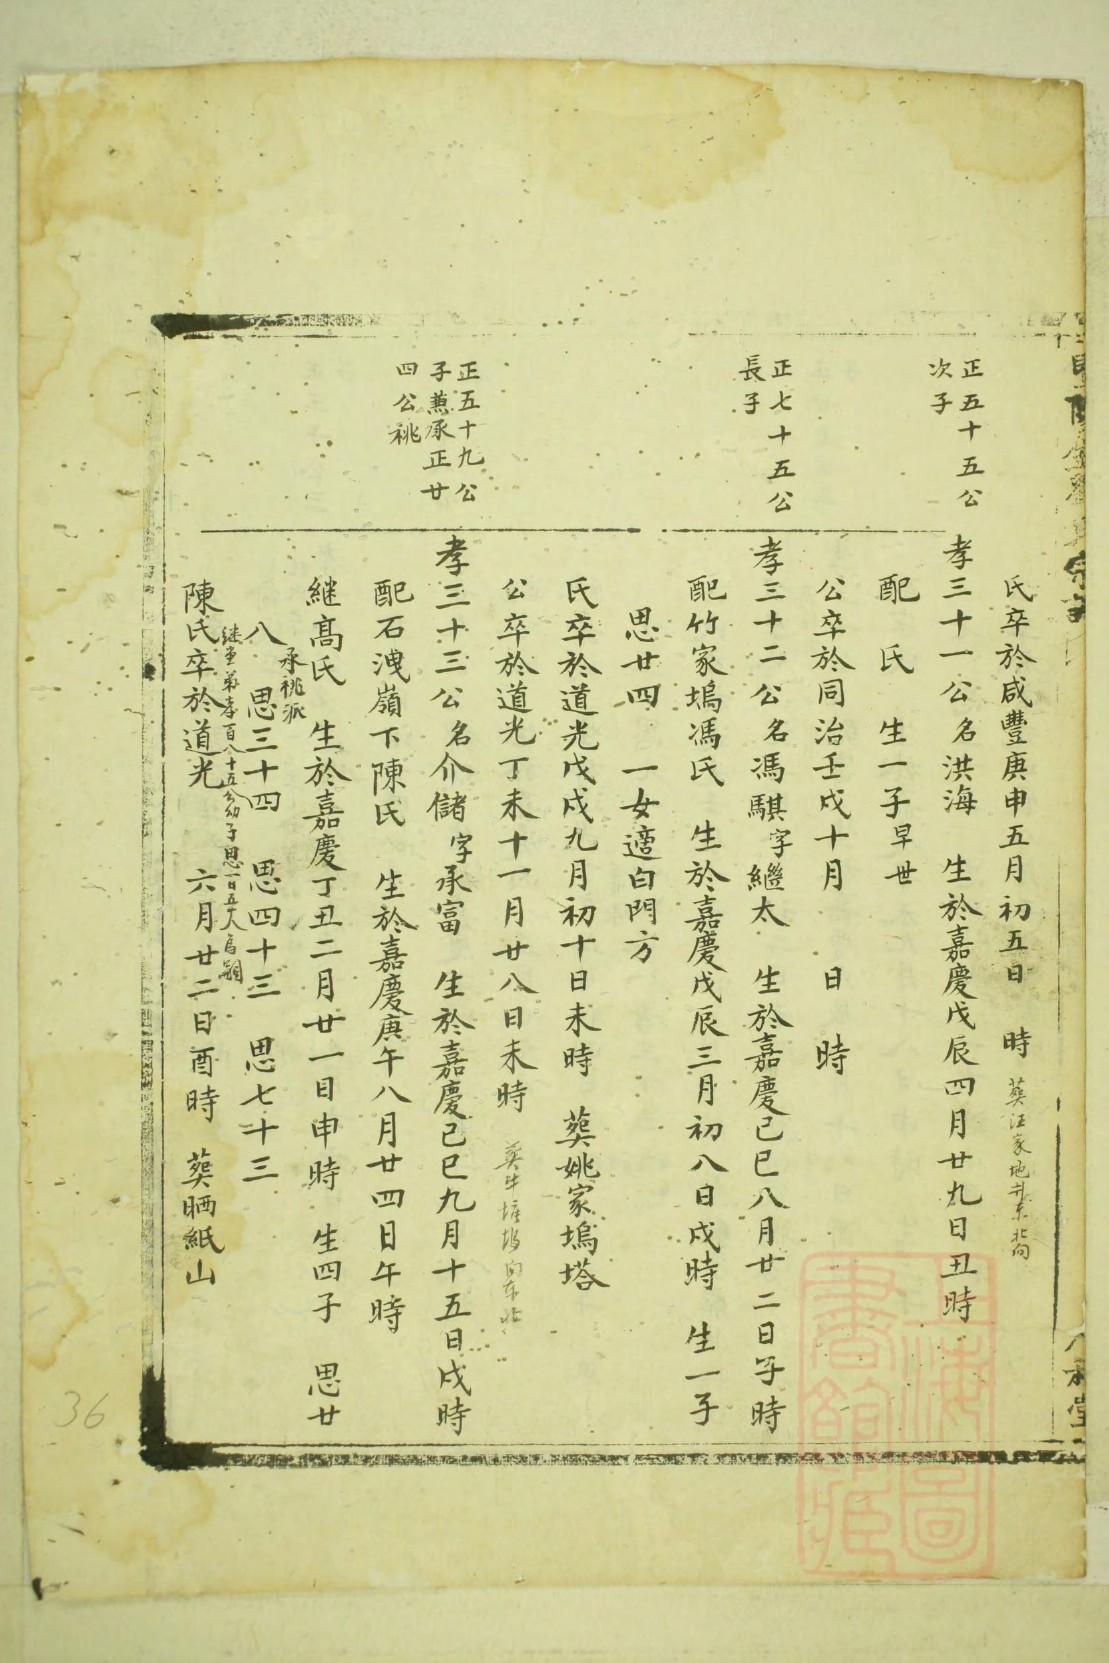 氏卒於咸豐庚申五月初五日　時　葬汪家地
正五十五公
次子
孝三十一公名洪海　生於嘉慶戊辰四月廿九日丑時
配　氏　生一子早世
公卒於同治壬戌十月　日　時
正七十五公
長子
孝三十二公名馮騏字繼太　生於嘉慶己巳八月廿二日子時
配竹家塢馮氏　生於嘉慶戊辰三月初八日戌時　生一子
思廿四　一女適白門方
氏卒於道光戊戌九月初十日未時　葬姚家塢塔
公卒於道光丁未十一月廿八日未時　葬牛塘塢向东北
正五十九公
子兼承正廿
四公祧
孝三十三公名介儲字承富　生於嘉慶己巳九月十五日戌時
配石洩嶺下陳氏　生於嘉慶庚午八月廿四日午時
継髙氏　生於嘉慶丁丑二月廿一日申時　生四子　思廿
承祧派
八　思三十四　思四十三　思七十三
継堂弟孝百八十五公幼子思一百五大為嗣
陳氏卒於道光　六月廿二日酉時　葬晒紙山
宗
堂
36
上海圖
書館藏